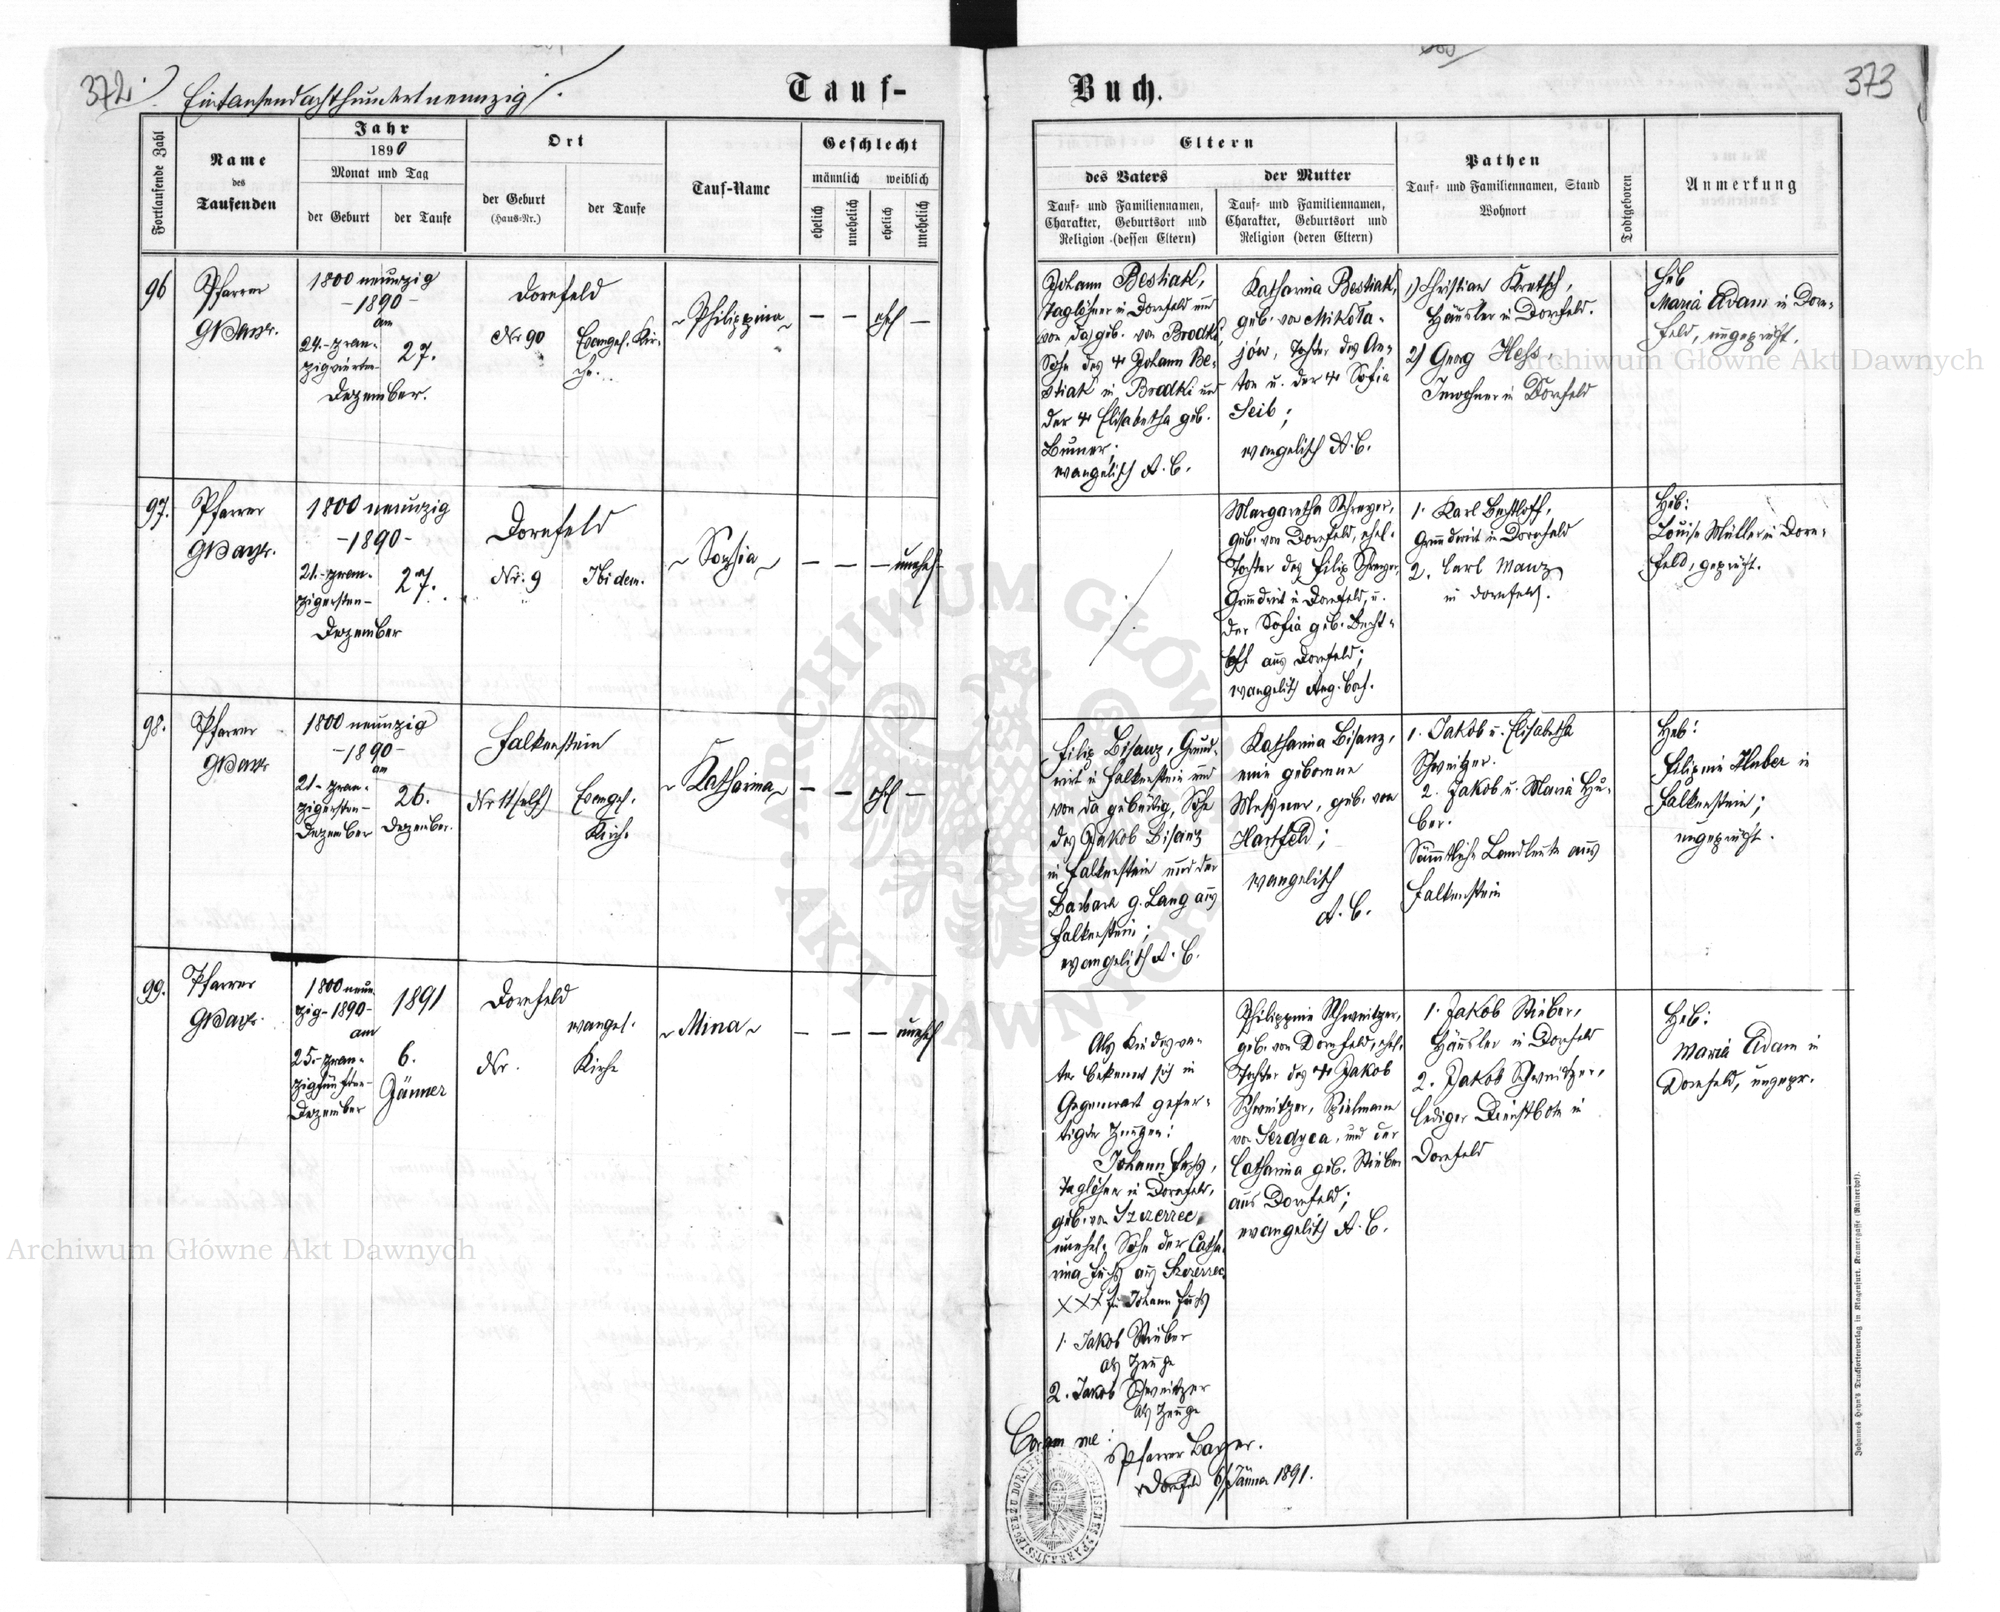 372
Eintausendachthundertneunzig
Tauf-
Buch.
373
Fortlaufende Zahl
Name
des
Taufenden
Jahr
1890
Monat und Tag
der Geburt
der Taufe
Ort
der Geburt
(Haus-Nr.)
der Taufe
Tauf-Name
Geschlecht
männlich
weiblich
ehelich
unehelich
ehelich
unehelich
Eltern
des Vaters
Tauf- und Familiennamen,
Charakter, Geburtsort und
Religion (dessen Eltern)
der Mutter
Tauf- und Familiennamen,
Charakter, Geburtsort und
Religion (deren Eltern)
Pathen
Tauf- und Familiennamen, Stand
Wohnort
Todtgeboren
Anmerkung
96
Pfarrer
1800 neunzig
-1890-
am
24.-zwan-
zigvierten
Dezember.
27.
Dornfeld
Nr 90
Evangel. Kir-
che.
Philippina
— — ehel —
Johann Bestiak,
Taglöhner in Dornfeld und
von da, geb. von Brodki,
Sohn des + Johann Be-
stiak in Brodki und
der + Elisabetha geb.
evangelisch A. C.
Katharina Bestiak,
geb. von Mikoła-
jów, Tochter des An-
ton u. der + Sofia
Seib;
evangelisch A. C.
1) Christian Kretsch,
Häusler in Dornfeld.
2) Georg Hess,
Inwohner in Dornfeld
Heb
Maria Adam in Dorn-
feld, ungeprüft.
97.
Pfarrer
1800 neunzig
-1890-
21.-zwan-
zigersten-
Dezember
27.
Dornfeld
Nr. 9
Ibidem.
Sophia
— — — unehel
Margaretha Schreyer,
geb. von Dornfeld, ehel.
Tochter des Filip Schreyer,
Grundwirt in Dornfeld, u.
der Sofia geb. Becht-
loff aus Dornfeld;
evangelisch Aug. Conf.
1. Karl Bechtloff,
Grundwirt in Dornfeld
2. Carl Manz
in Dornfeld.
Heb:
Louise Müller in Dorn-
feld, geprüft.
98.
Pfarrer
1800 neunzig
-1890-
am
21-zwan-
zigersten-
Dezember
26.
Dezember.
Falkenstein
Nr 11 (elf)
Evangel.
Kirche
Katharina
— — ehel —
Filip Bisanz, Grund-
wirt in Falkenstein und
von da gebürtig, Sohn
des Jakob Bisanz
in Falkenstein und der
Barbara g. Lang aus
Falkenstein;
evangelisch A. C.
Katharina Bisanz,
eine geborene
Messner, geb. von
Hartfeld;
evangelisch
A. C.
1. Jakob u. Elisabetha
Schweitzer.
2. Jakob u. Maria Hu-
ber.
Sämmtliche Landleute aus
Falkenstein
Heb:
Filipine Huber in
Falkenstein;
ungeprüft.
99.
Pfarrer
1800 neun-
zig-1890-
am
25.-zwan-
zigfünften-
Dezember
1891
6.
Jänner
Dornfeld
Nr.
evangel.
Kirche
Mina
— — — unehel
Als Kindesva-
ter bekennt sich in
Gegenwart gefer-
tigter Zeugen:
Johann Fuchs,
Taglöhner in Dornfeld,
geb. von Szczerzec,
unehel. Sohn der Catha-
rina Fuchs aus Szczerzec
XXX für Johann Fuchs
1. Jakob Stieber
als Zeuge
2. Jakob Schweitzer
als Zeuge
Coram me:
Pfarrer Bayer.
Dornfeld 6 Jänner 1891.
Philippine Schweitzer,
geb. von Dornfeld, ehel.
Tochter des + Jakob
Schweitzer, Spielmann
von Serdyca, und der
Catharina geb. Stieber
aus Dornfeld;
evangelisch A. C.
1. Jakob Stieber,
Häusler in Dornfeld
2. Jakob Schweitzer,
lediger Dienstbote in
Dornfeld
Heb:
Maria Adam in
Dornfeld, ungepr.
Johannes Heyn's Drucksortenverlag in Klagenfurt, Kramergasse (Rainerhof).
Archiwum Główne Akt Dawnych
Archiwum Główne Akt Dawnych
ARCHIWUM GŁÓWNE
AKT DAWNYCH